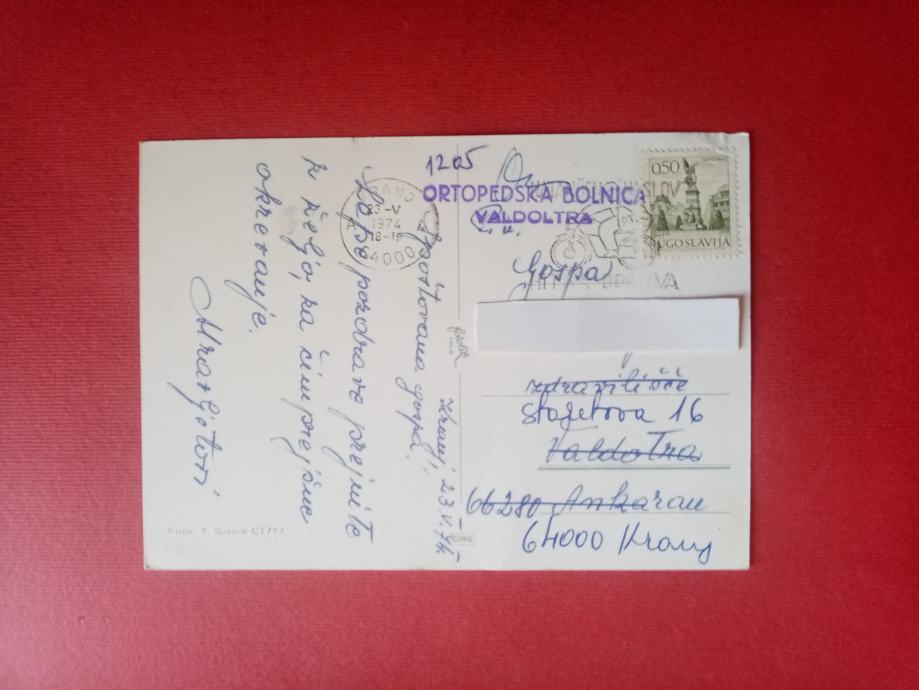 Kranj, 23.V.74
Spoštovana gospa!
Lepe pozdrave prejmite
z željo, za čimprejšne
okrevanje.
Mrargetovi
Foto: T. Sušnik C1717
1205
ORTOPEDSKA BOLNICA
VALDOLTRA
KRANJ
23-V
1974
18-19
64000
0,50
JUGOSLAVIJA
Gospa
zdravilišče
Stagetova 16
Valdoltra
66280 Ankaran
64000 Kranj